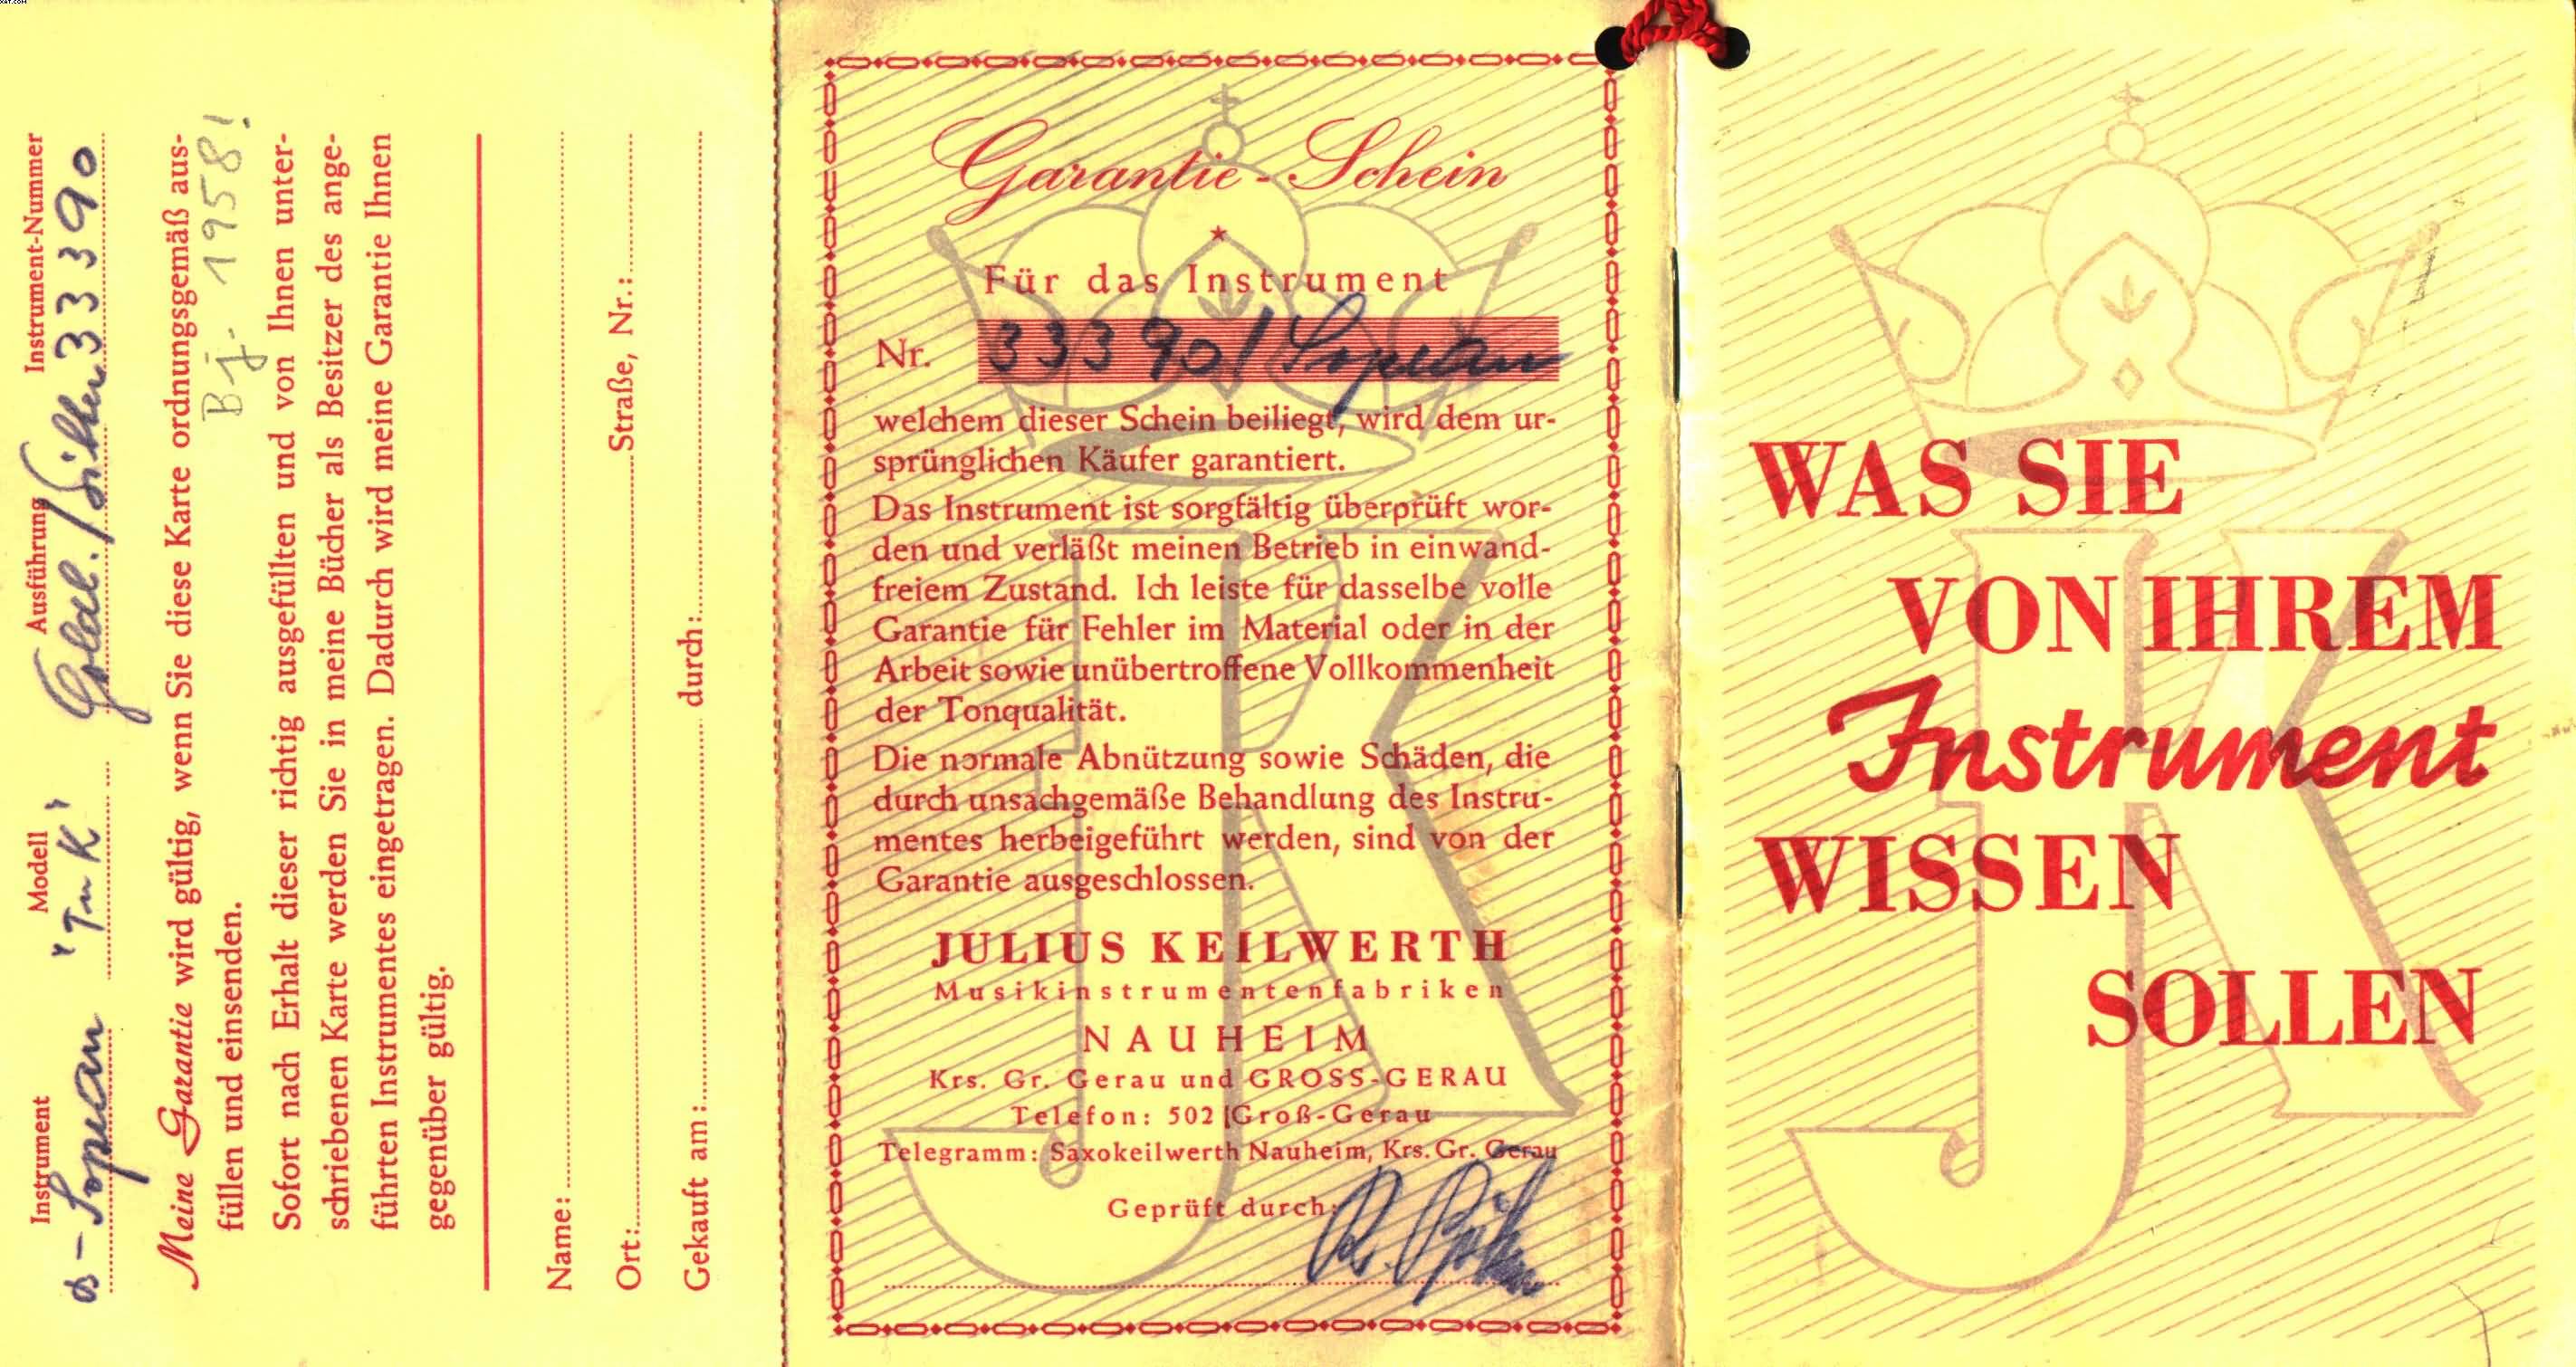 Instrument Modell Ausführung Instrument-Nummer
"Tn K" Gold./Silber 33390
Meine Garantie wird gültig, wenn Sie diese Karte ordnungsgemäß aus-
füllen und einsenden.
Bj. 1958!
Sofort nach Erhalt dieser richtig ausgefüllten und von Ihnen unter-
schriebenen Karte werden Sie in meine Bücher als Besitzer des ange-
führten Instrumentes eingetragen. Dadurch wird meine Garantie Ihnen
gegenüber gültig.
Name:
Ort: Straße, Nr.:
Gekauft am: durch:
Garantie-Schein
Für das Instrument
Nr. 33390/Sopran
welchem dieser Schein beiliegt, wird dem ur-
sprünglichen Käufer garantiert.
Das Instrument ist sorgfältig überprüft wor-
den und verläßt meinen Betrieb in einwand-
freiem Zustand. Ich leiste für dasselbe volle
Garantie für Fehler im Material oder in der
Arbeit sowie unübertroffene Vollkommenheit
der Tonqualität.
Die normale Abnützung sowie Schäden, die
durch unsachgemäße Behandlung des Instru-
mentes herbeigeführt werden, sind von der
Garantie ausgeschlossen.
JULIUS KEILWERTH
Musikinstrumentenfabriken
NAUHEIM
Krs. Gr. Gerau und GROSS-GERAU
Telefon: 502 Groß-Gerau
Telegramm: Saxokeilwerth Nauheim, Krs. Gr. Gerau
Geprüft durch:
JK
WAS SIE
VON IHREM
Instrument
WISSEN
SOLLEN
JK